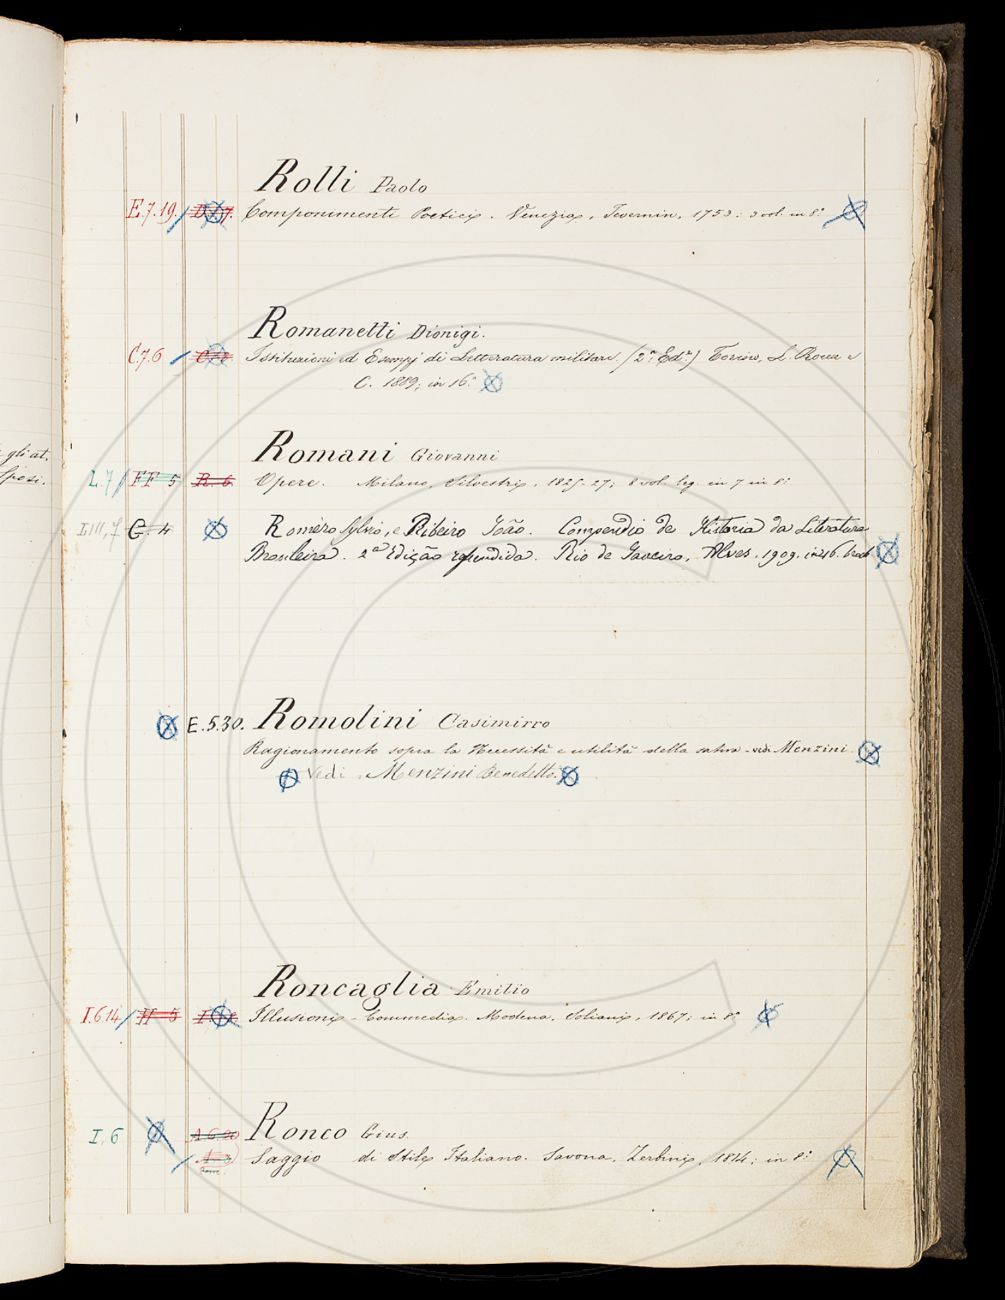 Rolli Paolo
E.7.19. Componimenti Poetici. Venezia, Tevernin, 1753: 3 vol. in 8.°
Romanetti Dionigi.
C.7.6 Istituzioni ed Esempj di Letteratura militare (2.ª Ed.ª) Torino, L. Roux e
C. 1889; in 16.°
gli at.
Romani Giovanni
Spesi.
L.7 FF 5 R. 6 Opere. Milano, Silvestri, 1825-27; 8 vol. leg. in 7 in 8.°
LIII, 7 G. 4 Romero Sylvio, e Ribeiro João. Compendio de Historia da Literatura
Brasileira. 2ª Edição refundida. Rio de Janeiro, Alves. 1909. in 16.
E.5.30. Romolini Casimirro
Ragionamento sopra la Necessità e utilità della satira - vedi Menzini.
Vedi Menzini Benedetto.
Roncaglia Emilio
I.6.14 H 5 Illusioni - Commedia. Modena, Soliani, 1867; in 8.°
Ronco Gius.
I.6 A.6.20
Saggio di Stile Italiano. Savona, Zerbini, 1814; in 8.°